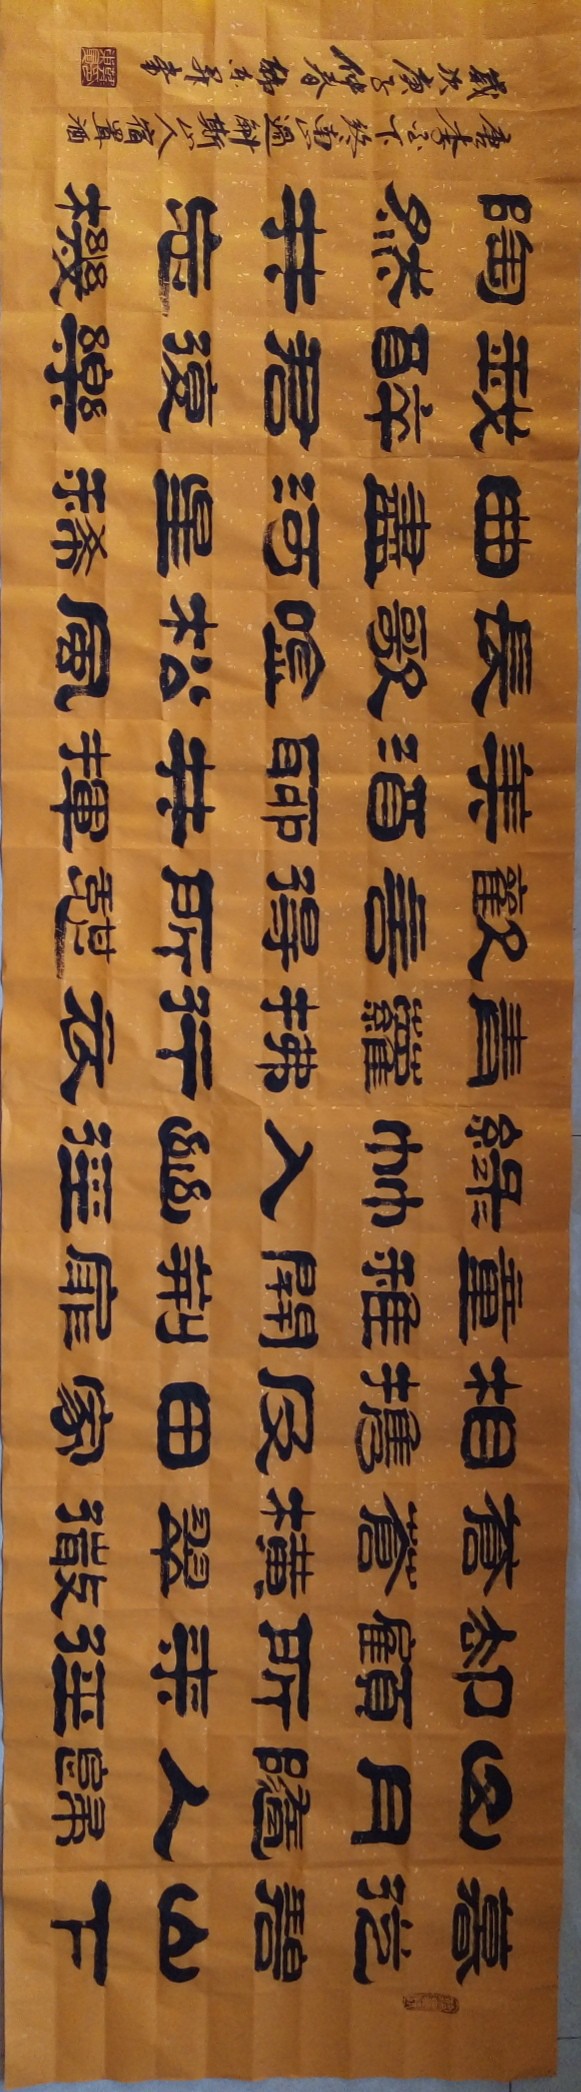 暮從碧山下
山月隨人歸
却顧所來徑
蒼蒼橫翠微
相攜及田家
童稚開荊扉
綠竹入幽徑
青蘿拂行衣
歡言得所憩
美酒聊共揮
長歌吟松風
曲盡河星稀
我醉君復樂
陶然共忘機
唐李白下終南山過斛斯山人宿置酒
歲次庚子仲春